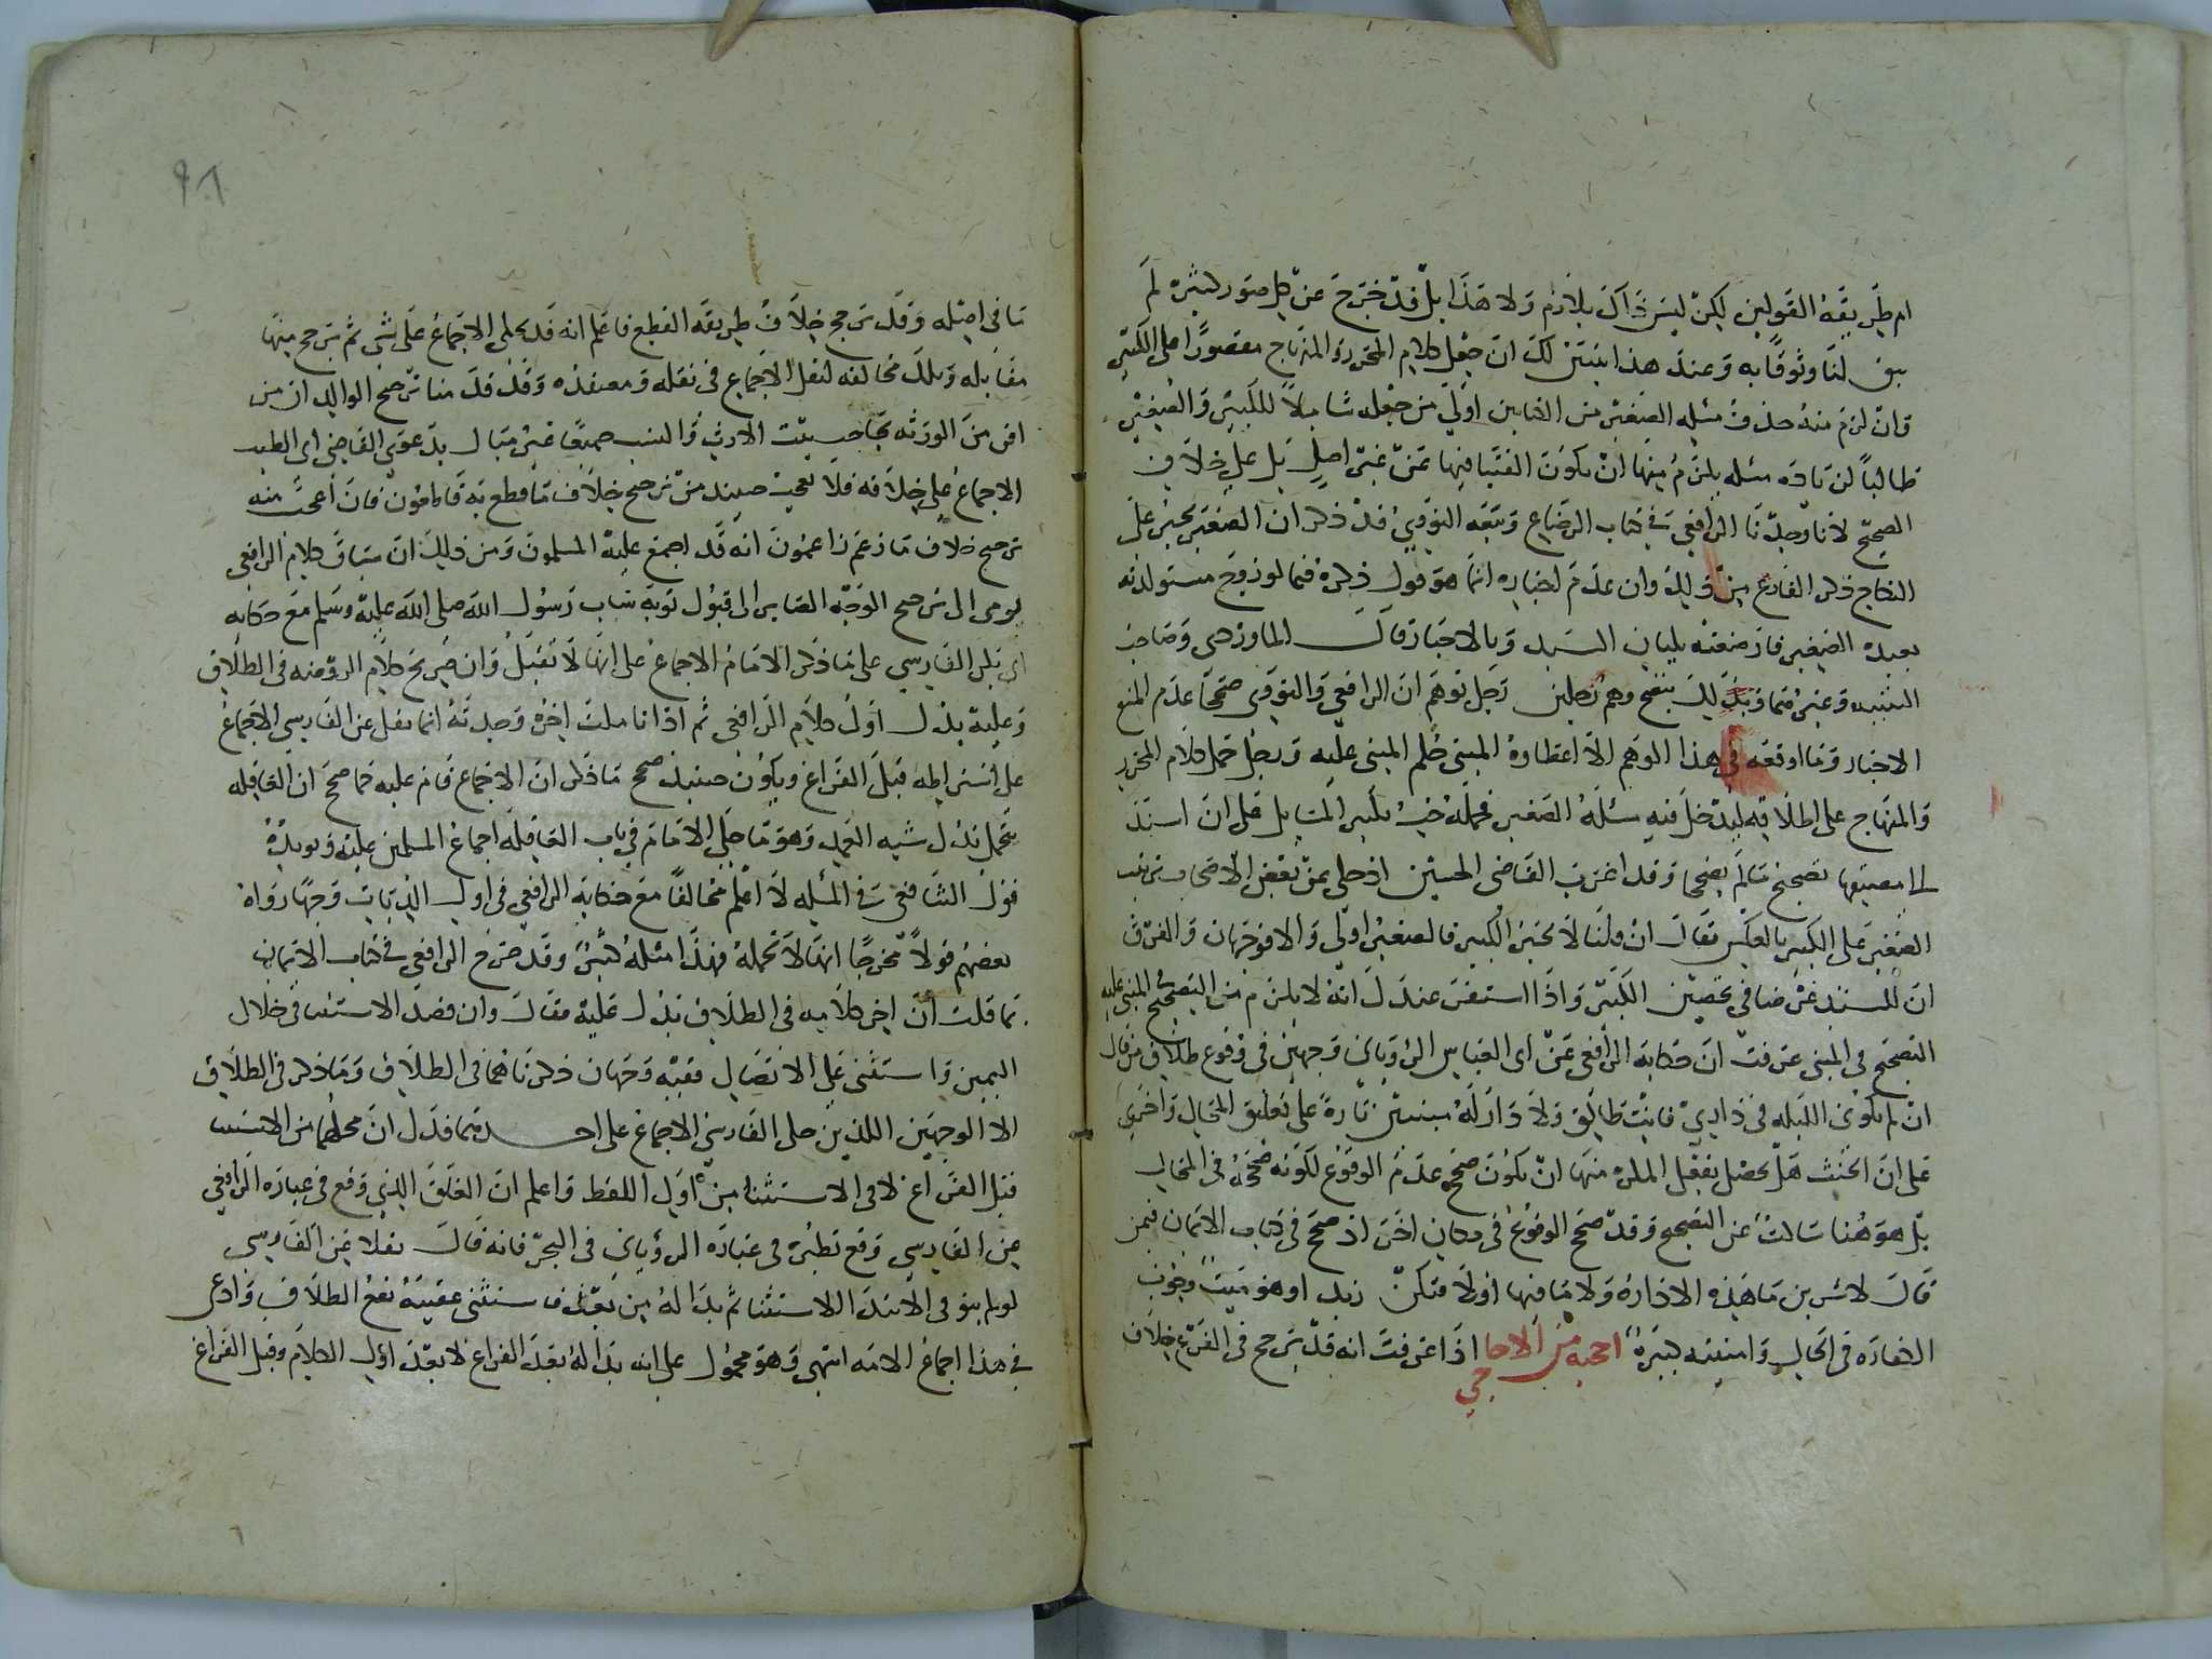 ام طريقة القولين لكن ليس ذاك بلازم ولا هذا بل قد خرج عن كل صور كثيرة لم
يبق لنا وثوقا به وعند هذا يتبين لك ان جعل كلام المحرر والمنهاج مقصورا على الكبير
وان لزم منه حذف مسئلة الصغير من الكتابين اولى من جعله شاملا للكبير والصغير
طالبا لزيادة مسئلة يلزم منها ان تكون الفتيا فيها عن غير اصل بل على خلاف
الصحيح لانا وجدنا الرافعي في كتاب الرضاع وتبعه النووي قد ذكر ان الصغير يجبر على
النكاح ذكر الفارغ من ذلك وان عدم اجباره انما هو قول ذكره فيما لو زوج مستولدته
بعبده الصغير فارضعته بلبان السيد وبالاجبار قال الماوردي وصاحب
التنبيه وغيرهما وبذلك يتضح وهم رجلين رجل توهم ان الرافعي والنووي صححا عدم المنع
الاجبار وما اوقعه في هذا الوهم الا اعطاؤه المبنى حكم المبنى عليه ورجل حمل كلام المحرر
والمنهاج على اطلاقه ليدخل فيه مسئلة الصغير فحمله حب تكبير المسائل على ان استند
الى معيتها تصحيح ما لم يصححا وقد اغرب القاضي الحسين اذ حكى عن بعض الاصحاب ترتيب
الصغير على الكبير بالعكس فقال ان قلنا لا يجبر الكبير فالصغير اولى والا فوجهان والفرق
ان للسيد غرضا في تحصين الكبير واذا استقر عندك انه لا يلزم من التصحيح المبنى عليه
التصحيح في المبنى عرفت ان حكاية الرافعي عن ابي العباس الروياني وجهين في وقوع طلاق من قال
ان لم تكوني الليلة في داري فانت طالق ولا دار له يبنيان تارة على تعليق المحال واخرى
على ان الحنث هل يحصل بفعل المكره منها ان يكون صحح عدم الوقوع لكونه صححه في المحال
بل هو هنا ساكت عن التصحيح وقد صحح الوقوع في مكان اخر اذ صحح في كتاب الايمان فيمن
قال لاشربن ما هذه الاداوة ولا ما فيها اولا قتلن زيد او هو ميت وجوب
الكفارة في الحال وامثلته كثيرة احجية من الاحاجي اذا عرفت انه قد يرجح في الفرع خلاف
ما في اصله وقد يرجح خلاف طريقة القطع فاعلم انه قد يحكى الاجماع على شيء ثم يرجح فيها
مقابله وتلك مخالفة لنقل الاجماع في نقله ومعتقده وقد قدمنا ترجيح الوالد ان من
اقر من الورثة بحاجب يثبت الارث والنسب جميعا غير مبال بدعوى القاضي ابي الطيب
الاجماع على خلافه فلا تعجب حينئذ من ترجيح خلاف ما قطع به قاطعون فان اعجب منه
ترجيح خلاف ما زعم زاعمون انه قد اجمع عليه المسلمون ومن ذلك ان سياق كلام الرافعي
يومي الى ترجيح الوجه الصاير الى قبول توبة ساب رسول الله صلى الله عليه وسلم مع حكايه
ابي بكر الفارسي على ما ذكر الامام الاجماع على انها لا تقبل وان صريح كلام الروضة في الطلاق
وعليه يدل اول كلام الرافعي ثم اذا تاملت اخره وجدته انما نقل عن الفارسي الاجماع
على اشتراطه قبل الفراغ ويكون حينئذ صحح ما ذكر ان الاجماع قام عليه كما صحح ان العاقلة
تحمل بدل شبه العمد وهو ما حكى الامام في باب العاقلة اجماع المسلمين عليه ويؤيده
قول الشافعي في المسئلة لا اعلم مخالفا مع حكاية الرافعي في اول الديات وجها رواه
بعضهم قولا مخرجا انها لا تحمله فهذا مسئلة كبير وقد صرح الرافعي في كتاب الايمان
بما قلت ان اخر كلامه في الطلاق يدل عليه فقال وان قصد الاستثناء في خلال
اليمين واستثنى على الاتصال ففيه وجهان ذكرناهما في الطلاق وما ذكر في الطلاق
الا الوجهين اللذين حكى الفارسي الاجماع على احدهما فدل ان محلهما من الاستثناء
قبل الفراغ لا في الاستثناء من اول اللفظ واعلم ان القلق الذي وقع في عبارة الرافعي
عن الفارسي وقع نظيره في عبارة الروياني في البحر فانه قال نقلا عن الفارسي
لو لم ينو في الابتداء الاستثناء ثم بدا له من بعد فاستثنى عقيبه يقع الطلاق وادعى
في هذا اجماع الامة انتهى وهو محمول على انه بدا له بعد الفراغ لا بعد اول الكلام وقبل الفراغ